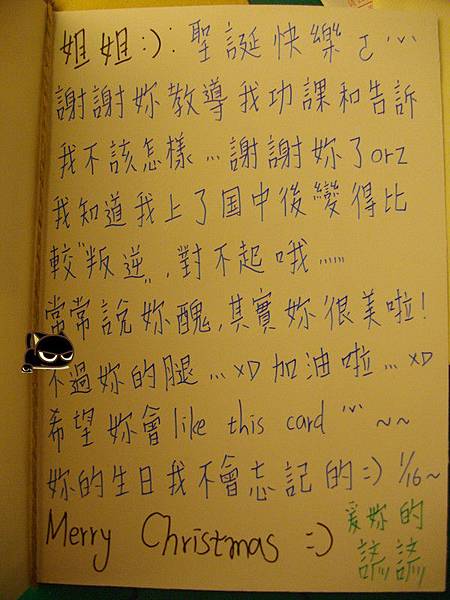 姐姐:):聖誕快樂ㄛ
謝謝妳教導我功課和告訴
我不該怎樣…謝謝妳了orz
我知道我上了国中後變得比
較"叛逆",對不起哦……
常常說妳醜,其實妳很美啦!
不過妳的腿…XD加油啦…XD
希望妳會like this card ~~
妳的生日我不會忘記的=) 1/16~
Merry Christmas =)
爱妳的